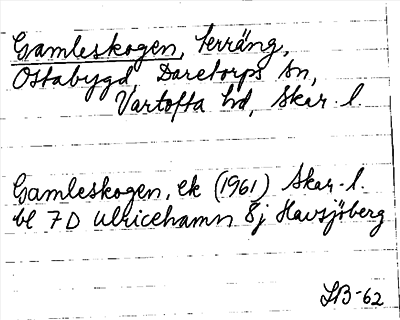 Gamleskogen, terräng,
Ostabygd Daretorps sn,
Vartofta hd, Skar. l.
Gamleskogen, ek (1961) Skar. l.
bl 7D Ulricehamn 8j Havsjöberg
LB-62